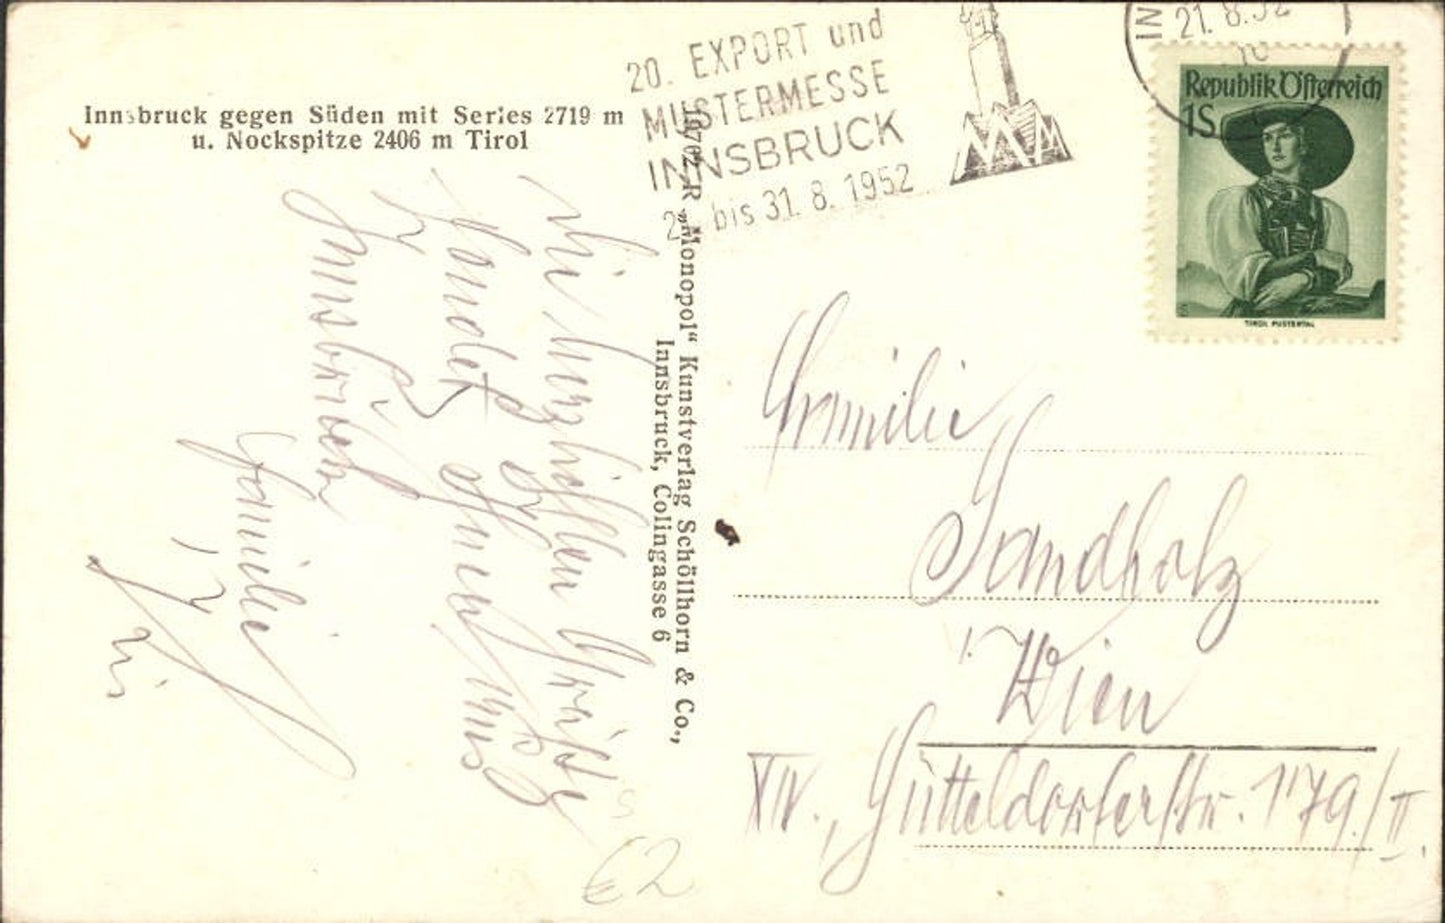 Innsbruck gegen Süden mit Serles 2719 m
u. Nockspitze 2406 m Tirol
20. EXPORT und
MUSTERMESSE
INNSBRUCK
bis 31. 8. 1952
IN
21. 8. 52
Republik Österreich
1S
TIROL PUSTERTAL
R „Monopol“ Kunstverlag Schöllhorn & Co.,
Innsbruck, Colingasse 6
Die herzlichsten Grüße
sendet
Innsbruck
Familie
Familie
Sandholz
Wien
XIV., Hütteldorferstr. 179/II.
€2